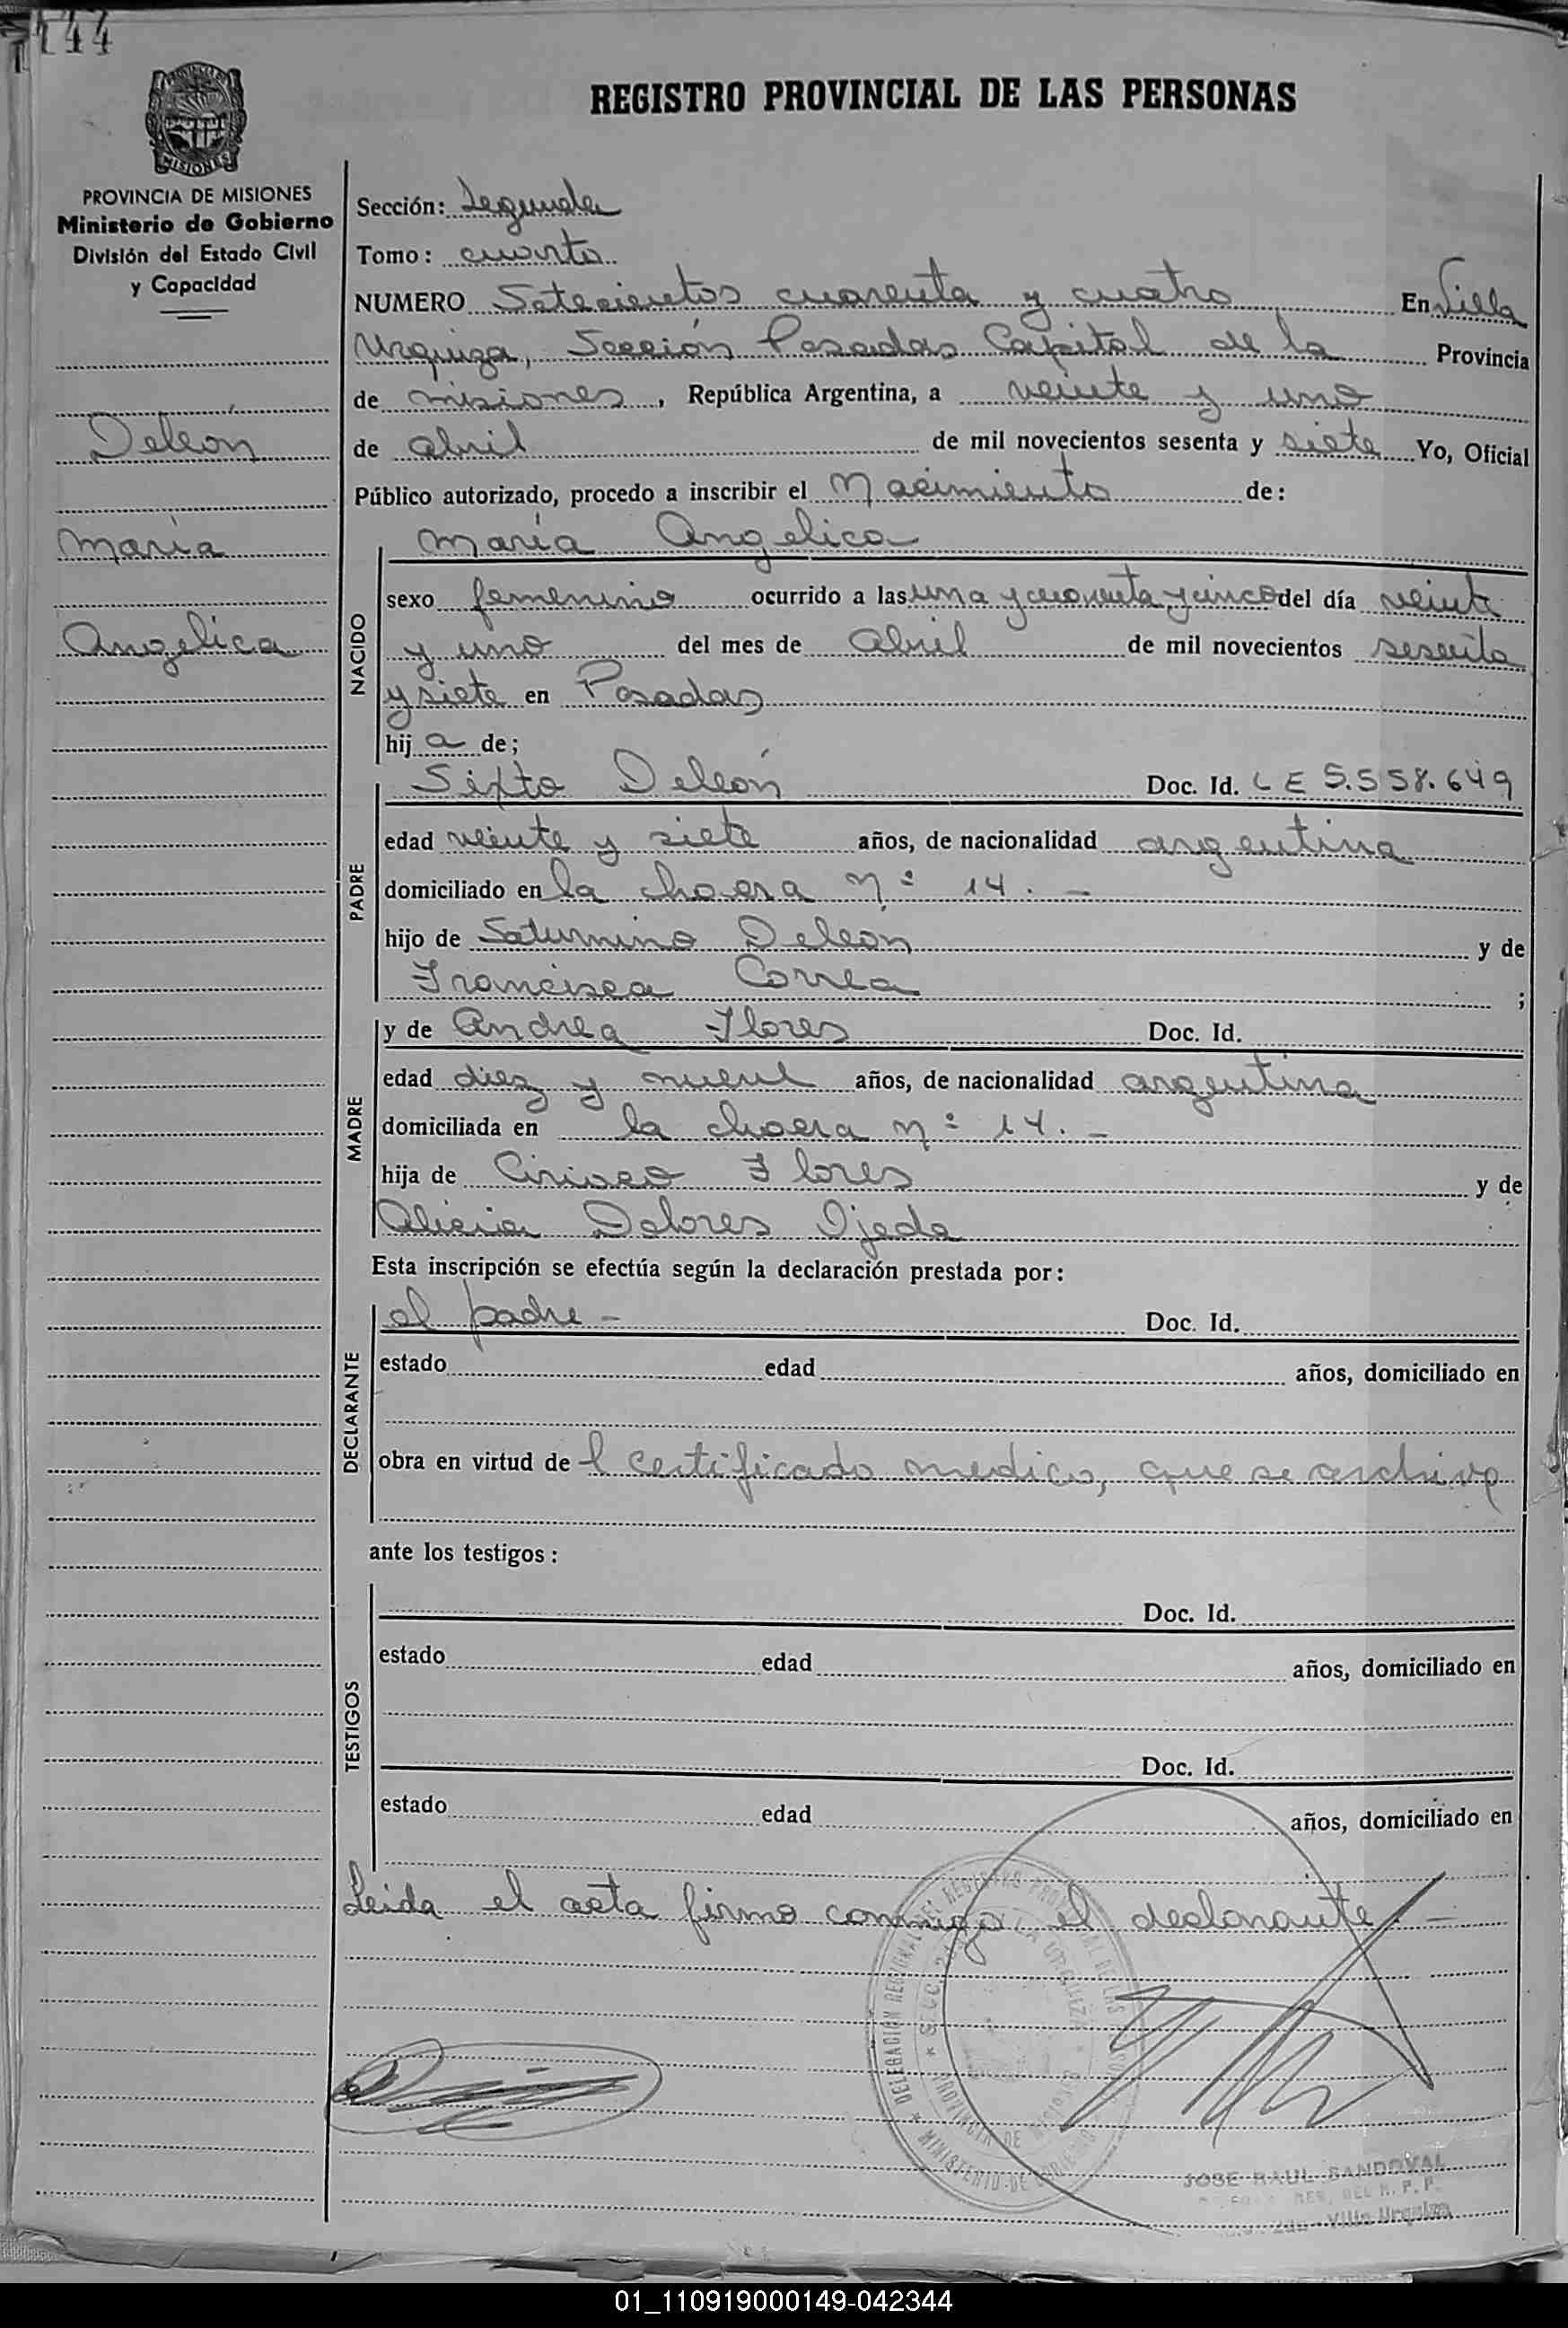 144
REGISTRO PROVINCIAL DE LAS PERSONAS
MISIONES
PROVINCIA DE MISIONES
Ministerio de Gobierno
División del Estado Civil
y Capacidad
Deleón
María
Angelica
Sección: Segunda
Tomo: cuarto
NUMERO Setecientos cuarenta y cuatro En Villa
Urquiza, Sección Posadas Capital de la Provincia
de misiones, República Argentina, a veinte y uno
de abril de mil novecientos sesenta y siete Yo, Oficial
Público autorizado, procedo a inscribir el Nacimiento de:
María Angelica
NACIDO
sexo femenino ocurrido a las una y cuarenta y cinco del día veinte
y uno del mes de Abril de mil novecientos sesenta
y siete en Posadas
hija de;
Sixto Deleón Doc. Id. LE 5.558.649
PADRE
edad veinte y siete años, de nacionalidad argentina
domiciliado en la chacra Nº 14. -
hijo de Saturnino Deleón y de
Francisca Correa ;
y de Andrea Flores Doc. Id.
MADRE
edad diez y nueve años, de nacionalidad argentina
domiciliada en la chacra nº 14. -
hija de Ciriaco Flores y de
Alicia Dolores Ojeda
Esta inscripción se efectúa según la declaración prestada por:
el padre - Doc. Id.
DECLARANTE
estado edad años, domiciliado en
obra en virtud del certificado medico, que se archiva
ante los testigos:
Doc. Id.
TESTIGOS
estado edad años, domiciliado en
Doc. Id.
estado edad años, domiciliado en
Leida el acta firma conmigo el declarante. -
DELEGACIÓN REGIONAL DEL REGISTRO PROVINCIAL DE LAS PERSONAS
MINISTERIO DE GOBIERNO
PROVINCIA DE MISIONES
JOSE RAUL SANDOVAL
Villa Urquiza
01_110919000149-042344